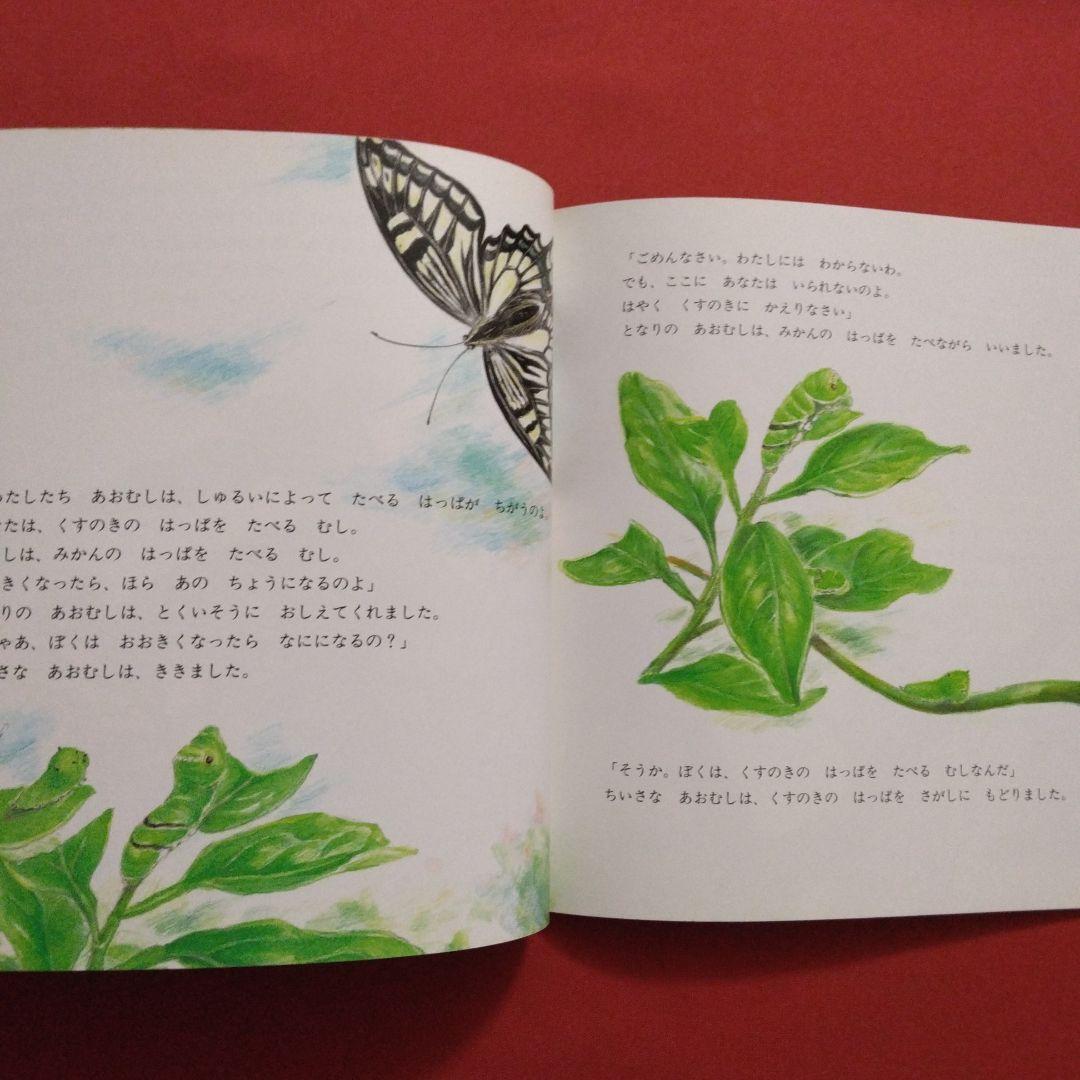 わたしたち　あおむしは、しゅるいによって　たべる　はっぱが　ちがうのよ。
たは、くすのきの　はっぱを　たべる　むし。
しは、みかんの　はっぱを　たべる　むし。
きくなったら、ほら　あの　ちょうになるのよ」
りの　あおむしは、とくいそうに　おしえてくれました。
ゃあ、ぼくは　おおきくなったら　なにになるの？」
さな　あおむしは、ききました。
「ごめんなさい。わたしには　わからないわ。
でも、ここに　あなたは　いられないのよ。
はやく　くすのきに　かえりなさい」
となりの　あおむしは、みかんの　はっぱを　たべながら　いいました。
「そうか。ぼくは、くすのきの　はっぱを　たべる　むしなんだ」
ちいさな　あおむしは、くすのきの　はっぱを　さがしに　もどりました。